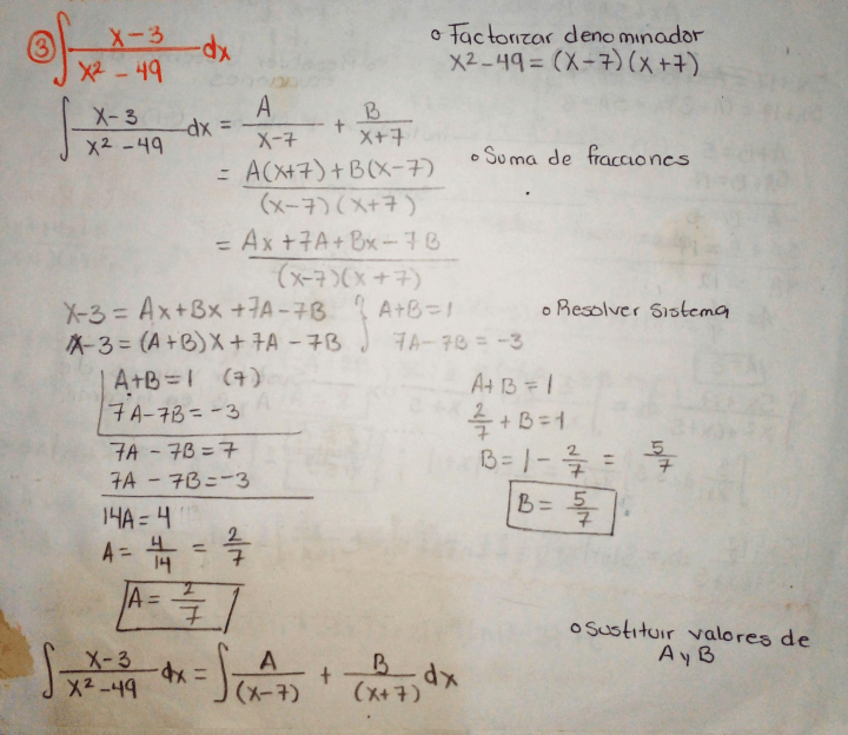 ③ ∫ x-3 / x² - 49 dx
o Factorizar denominador
x² - 49 = (x-7)(x+7)
∫ x-3 / x² - 49 dx = A / x-7 + B / x+7
o Suma de fracciones
= A(x+7) + B(x-7) / (x-7)(x+7)
= Ax + 7A + Bx - 7B / (x-7)(x+7)
x-3 = Ax + Bx + 7A - 7B { A+B = 1
o Resolver sistema
x-3 = (A+B)x + 7A - 7B } 7A - 7B = -3
A+B = 1 (7)
7A - 7B = -3
7A - 7B = 7
7A - 7B = -3
14A = 4
A = 4/14 = 2/7
A = 2/7
A + B = 1
2/7 + B = 1
B = 1 - 2/7 = 5/7
B = 5/7
o Sustituir valores de
A y B
∫ x-3 / x² - 49 dx = ∫ A / (x-7) + B / (x+7) dx